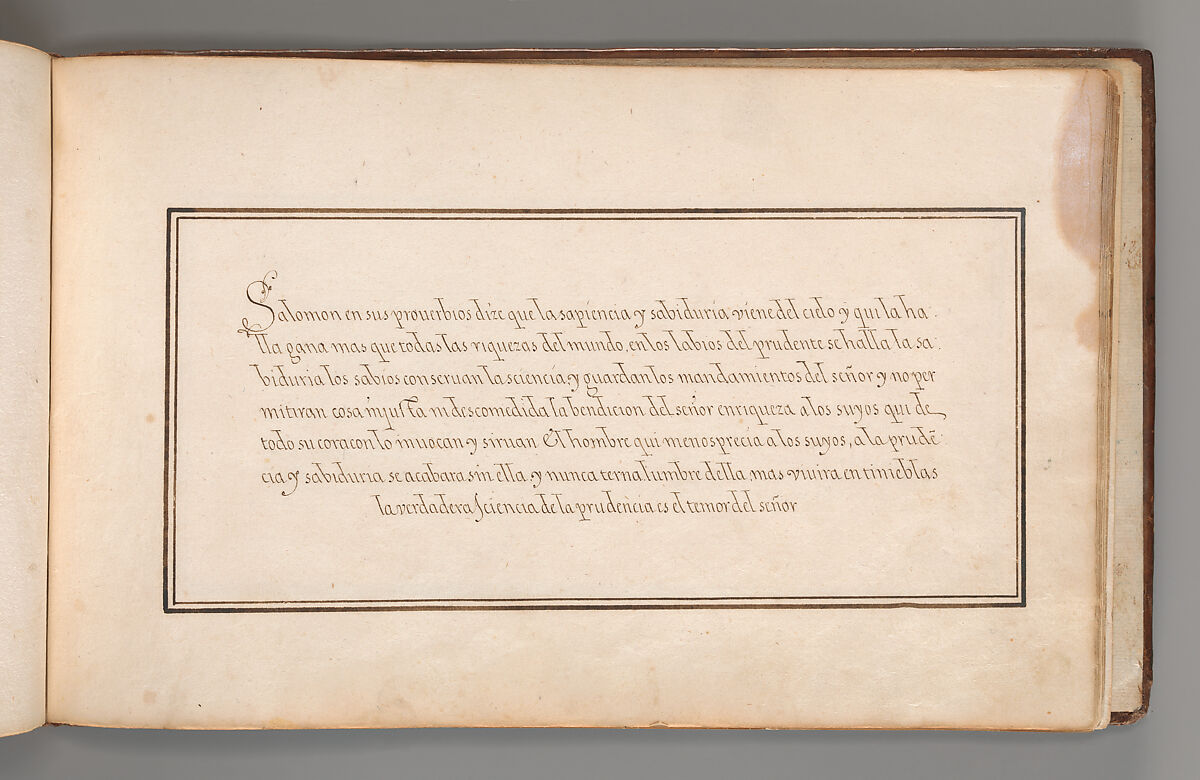 Salomon en sus prouerbios dize que la sapiencia y sabiduria viene del cielo y qui la ha-
lla gana mas que todas las riquezas del mundo, en los labios del prudente se halla la sa-
biduria los sabios conseruan la sciencia y guardan los mandamientos del señor y no per
mitiran cosa injusta ni descomedida la bendicion del señor enriqueza a los suyos qui de
todo su coracon lo inuocan y siruan El hombre qui menosprecia a los suyos, a la prudē-
cia y sabiduria se acabara sin ella y nunca terna lumbre della, mas viuira en tinieblas
la verdadera sciencia de la prudencia es el temor del señor